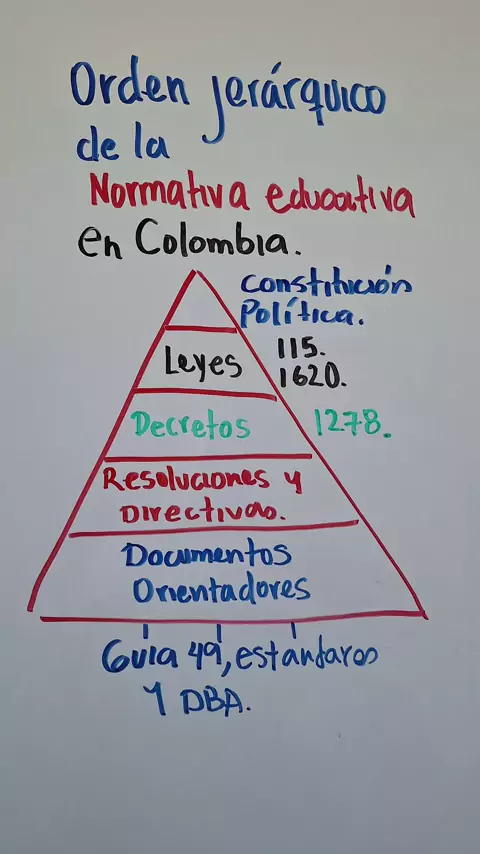 Orden jerárquico
de la
Normativa educativa
en Colombia.
Constitución
Política.
Leyes
115.
1620.
Decretos
1278.
Resoluciones y
Directivas.
Documentos
Orientadores
Guía 49, estándares
Y DBA.